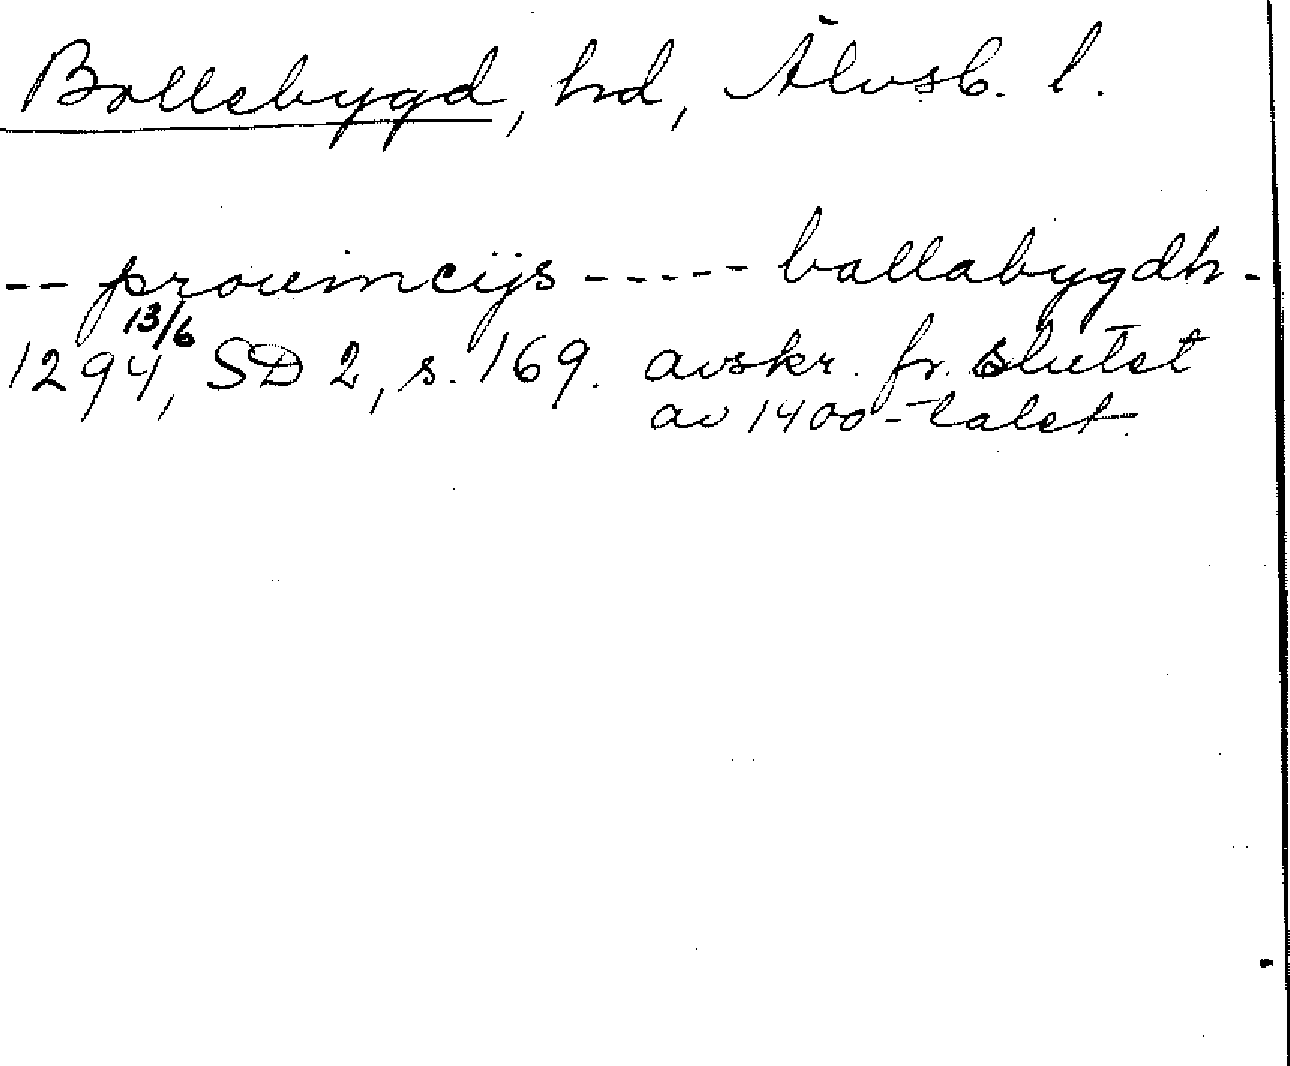 Bollebygd, hd, Älvsb. l.
-- prouincijs ----- ballabygdh -
13/6
1294, SD 2, s. 169. avskr. fr. slutet
av 1400-talet.